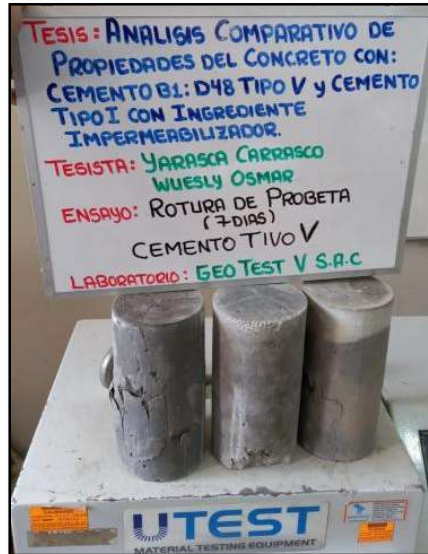 TESIS: ANALISIS COMPARATIVO DE
PROPIEDADES DEL CONCRETO CON:
CEMENTO B1: D48 TIPO V y CEMENTO
TIPO I CON INGREDIENTE
IMPERMEABILIZADOR.
TESISTA: YARASCA CARRASCO
WUESLY OSMAR
ENSAYO: ROTURA DE PROBETA
(7 DIAS)
CEMENTO TIVO V
LABORATORIO: GEO TEST V S.A.C
UTEST
MATERIAL TESTING EQUIPMENT